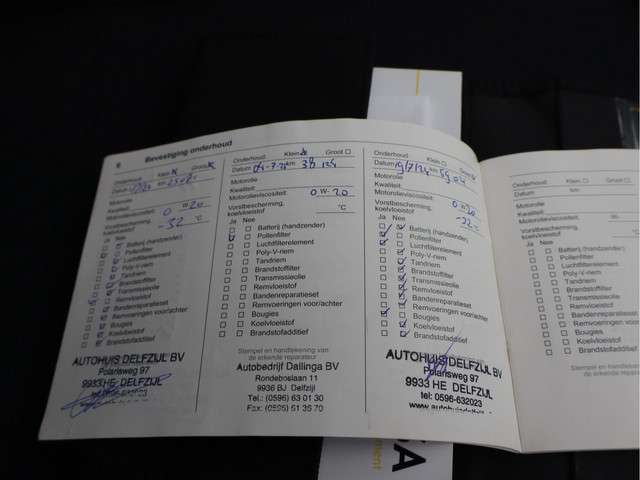 6 Bevestiging onderhoud
Onderhoud: Klein Groot
Datum km
Motorolie
Kwaliteit
Motorolieviscositeit: 0 W 20
Vorstbescherming,
koelvloeistof -32 °C
Ja Nee
Batterij (handzender)
Pollenfilter
Luchtfilterelement
Poly-V-riem
Tandriem
Brandstoffilter
Transmissieolie
Remvloeistof
Bandenreparatieset
Remvoeringen voor/achter
Bougies
Koelvloeistof
Brandstofadditief
AUTOHUIS DELFZIJL BV
Polarisweg 97
9933 HE DELFZIJL
Onderhoud: Klein Groot
Datum km
Motorolie
Kwaliteit:
Motorolieviscositeit: 0 W- 20
Vorstbescherming,
koelvloeistof °C
Ja Nee
Batterij (handzender)
Pollenfilter
Luchtfilterelement
Poly-V-riem
Tandriem
Brandstoffilter
Transmissieolie
Remvloeistof
Bandenreparatieset
Remvoeringen voor/achter
Bougies
Koelvloeistof
Brandstofadditief
Stempel en handtekening van
de erkende reparateur
Autobedrijf Dallinga BV
Rondeboslaan 11
9936 BJ Delfzijl
Tel.: (0596) 63 01 30
Fax: (0596) 61 35 70
Onderhoud: Klein Groot
Datum 19/7/24 km
Motorolie
Kwaliteit:
Motorolieviscositeit: 0 W 20
Vorstbescherming,
koelvloeistof °C
Ja Nee
Batterij (handzender)
Pollenfilter
Luchtfilterelement
Poly-V-riem
Tandriem
Brandstoffilter
Transmissieolie
Remvloeistof
Bandenreparatieset
Remvoeringen voor/achter
Bougies
Koelvloeistof
Brandstofadditief
AUTOHUIS DELFZIJL BV
Polarisweg 97
9933 HE DELFZIJL
tel: 0596-632023
Onderhoud: Klein Groot
Datum km
Motorolie
Kwaliteit:
Motorolieviscositeit: W
Vorstbescherming,
koelvloeistof
Ja Nee
Batterij (handzender)
Pollenfilter
Luchtfilterelement
Poly-V-riem
Tandriem
Brandstoffilter
Transmissieolie
Remvloeistof
Bandenreparatieset
Remvoeringen voor/achter
Bougies
Koelvloeistof
Brandstofadditief
Stempel en handtekening
de erkende reparateur